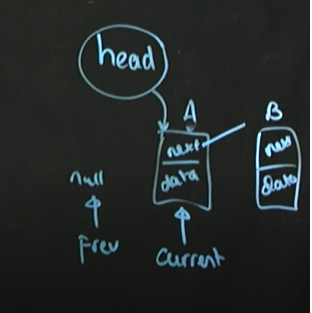 head
A
B
next
data
next
data
null
Prev
Current